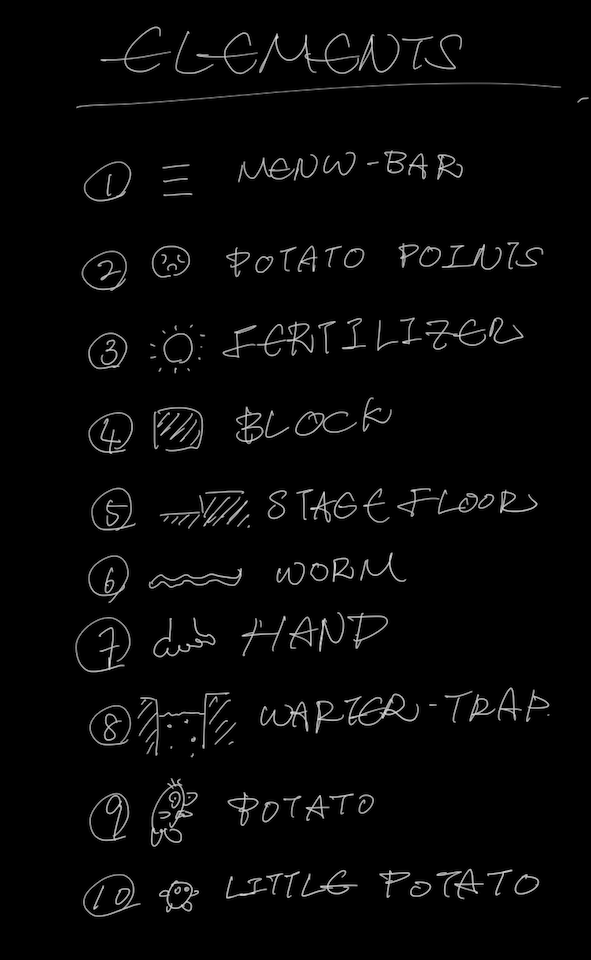 ELEMENTS
① MENW-BAR
② POTATO POINTS
③ FERTILIZER
④ BLOCK
⑤ STAGE FLOOR
⑥ WORM
⑦ HAND
⑧ WARTER-TRAP
⑨ POTATO
⑩ LITTLE POTATO